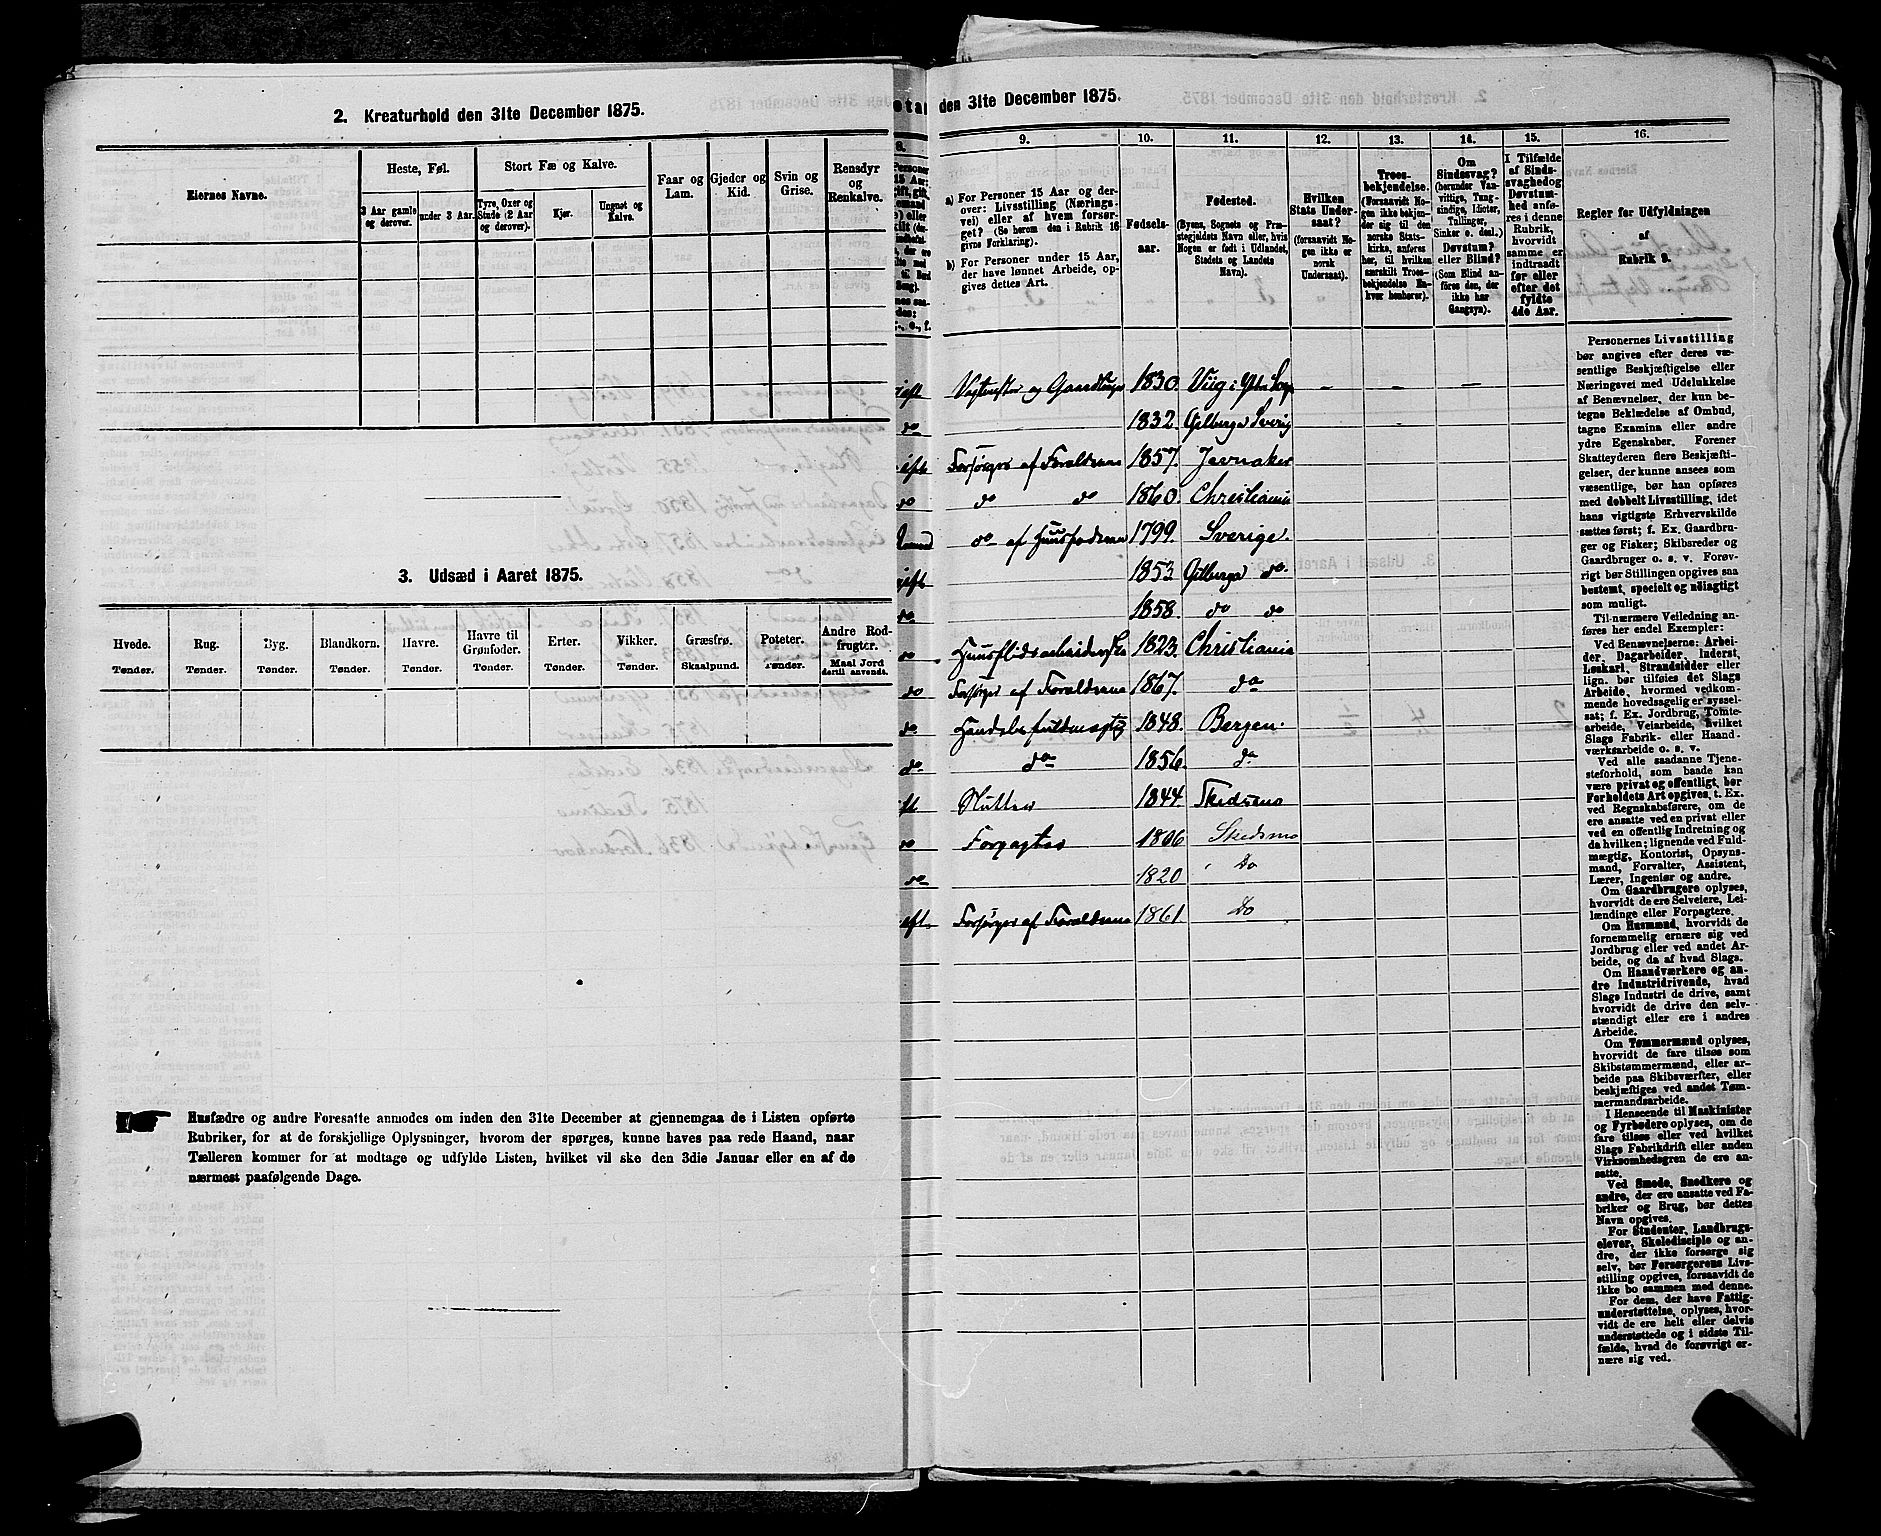 2. Kreaturhold den 31te December 1875.
Eiernes Navne.
Heste, Føl.
Stort Fæ og Kalve.
Faar og Lam.
Gjeder og Kid.
Svin og Grise.
Rensdyr og Renkalve.
3 Aar gamle og derover.
under 3 Aar.
Tyre, Oxer og Stude (2 Aar og derover).
Kjør.
Ungnøt og Kalve.
3. Udsæd i Aaret 1875.
Hvede. Rug. Byg. Blandkorn. Havre. Havre til Grønfoder. Erter. Vikker. Græsfrø. Poteter. Andre Rodfrugter.
Tønder. Tønder. Tønder. Tønder. Tønder. Tønder. Tønder. Tønder. Skaalpund. Tønder. Maal Jord dertil anvendt.
Husfædre og andre Foresatte anmodes om inden den 31te December at gjennemgaa de i Listen opførte
Rubriker, for at de forskjellige Oplysninger, hvorom der spørges, kunne haves paa rede Haand, naar
Tælleren kommer for at modtage og udfylde Listen, hvilket vil ske den 3die Januar eller en af de
nærmest paafølgende Dage.
den 31te December 1875.
8.
9. 10. 11. 12. 13. 14. 15. 16.
a) For Personer 15 Aar og derover: Livsstilling (Næringsvei) eller af hvem forsørget? (Se herom den i Rubrik 16 givne Forklaring).
b) For Personer under 15 Aar, der have lønnet Arbeide, opgives dettes Art.
Fødselsaar.
Fødested.
(Byens, Sognets og Præstegjeldets Navn eller, hvis Nogen er født i Udlandet, Stedets og Landets Navn).
Hvilken Stats Undersaat?
(forsaavidt Nogen ikke er norsk Undersaat).
Troesbekjendelse.
(Forsaavidt Nogen ikke bekjender sig til den norske Statskirke, anføres her, til hvilken særskilt Troesbekjendelse Enhver henhører).
Om Sindssvag?
(herunder Vanvittige, Tungsindige, Idioter, Tullinger, Sinker o. desl.)
Døvstum?
eller Blind?
(Som Blind anføres den, der ikke har Gangsyn).
I Tilfælde af Sindssvaghed og Døvstumhed anføres i denne Rubrik, hvorvidt samme er indtraadt før eller efter det fyldte 4de Aar.
Regler for Udfyldningen
af
Rubrik 9.
gift Vagtmester og Gaardbruger 1830. Viig i Ytbu Sogn – – –
do 1832. Gilberga Sverig
ugift Forsørges af Forældrene 1857. Jevnaker
do do do 1860. Christiania
do af Huusfaderen 1799. Sverige.
ugift 1853. Gilberga do.
do 1858 do do
do Huusflidsarbeiderske 1823. Christiania
do Forsørges af Forældrene 1867. do
do Handelsfuldmægtig 1848. Bergen.
do. do 1856. do
gift 1844. Skedsmo
do Forpagter 1806 Skedsmo
do 1820 Do
ugift. Forsørges af Forældrene 1861. Do
Personernes Livsstilling
bør angives efter deres væ-
sentlige Beskjæftigelse eller
Næringsvei med Udelukkelse
af Benævnelser, der kun be-
tegne Beklædelse af Ombud,
tagne Examina eller andre
ydre Egenskaber. Forener
Skatteyderen flere Beskjæfti-
gelser, der kunne ansees som
væsentlige, bør han opføres
med dobbelt Livsstilling, idet
hans vigtigste Erhvervskilde
sættes først; f. Ex. Gaardbru-
ger og Fisker; Skibsreder og
Gaardbruger o. s. v. Forøv-
rigt bør Stillingen opgives saa
bestemt, specielt og nøiagtigt
som muligt.
Til nærmere Veiledning an-
føres her endel Exempler:
Ved Benævnelserne: Arbei-
der, Dagarbeider, Inderst,
Løskarl, Strandsidder eller
lign. bør tilføies det Slags
Arbeide, hvormed vedkom-
mende hovedsagelig er syssel-
sat; f. Ex. Jordbrug, Tomte-
arbeide, Veiarbeide, hvilket
Slags Fabrik- eller Haand-
værksarbeide o. s. v.
Ved alle saadanne Tjene-
steforhold, som baade kan
være privat og offentligt, bør
Forholdets Art opgives, t. Ex.
ved Regnskabsførere, om de
ere ansatte ved en privat eller
ved en offentlig Indretning og
da hvilken; lignende ved Fuld-
mægtig, Kontorist, Opsyns-
mand, Forvalter, Assistent,
Lærer, Ingeniør og andre.
Om Gaardbrugere oplyses,
hvorvidt de ere Selveiere, Lei-
lændinge eller Forpagtere.
Om Husmænd, hvorvidt de
fornemmelig ernære sig ved
Jordbrug eller ved andet Ar-
beide, og da af hvad Slags.
Om Haandværkere og an-
dre Industridrivende, hvad
Slags Industri de drive, samt
hvorvidt de drive den selv-
stændigt eller ere i andres
Arbeide.
Om Tømmermænd oplyses,
hvorvidt de fare tilsøs som
Skibstømmermænd, eller ar-
beide paa Skibsværfter, eller
beskjæftiges ved andet Tøm-
mermandsarbeide.
I Henseende til Maskinister
og Fyrbødere oplyses, om de
fare tilsøs eller ved hvilket
Slags Fabrikdrift eller anden
Virksomhedsgren de ere an-
satte.
Ved Smede, Snedkere og
andre, der ere ansatte ved Fa-
briker og Brug, bør dettes
Navn opgives.
For Studenter, Landbrugs-
elever, Skoledisciple og an-
dre, der ikke forsørge sig
selv, bør Forsørgerens Livs-
stilling opgives, forsaavidt de
ikke bo sammen med denne.
For dem, der have Fattig-
understøttelse, oplyses, hvor-
vidt de ere helt eller delvis
understøttede og i sidste Til-
fælde, hvad de forøvrigt er-
nære sig ved.